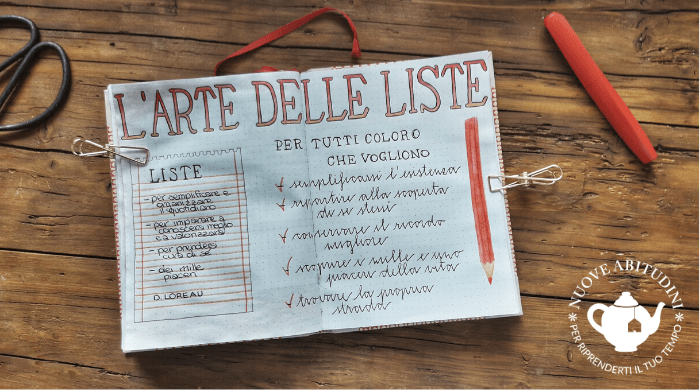 L'ARTE DELLE LISTE
LISTE
- per semplificare e
organizzare
il quotidiano
- per imparare a
conoscersi meglio
e a valorizzarsi
- per prendersi
cura di sé
- dei mille
piaceri
D. LOREAU
PER TUTTI COLORO
CHE VOGLIONO
semplificarsi l'esistenza
ripartire alla scoperta
di se stessi
conservare il ricordo
migliore
scoprire i mille e uno
piaceri della vita
trovare la propria
strada
NUOVE ABITUDINI
PER RIPRENDERTI IL TUO TEMPO